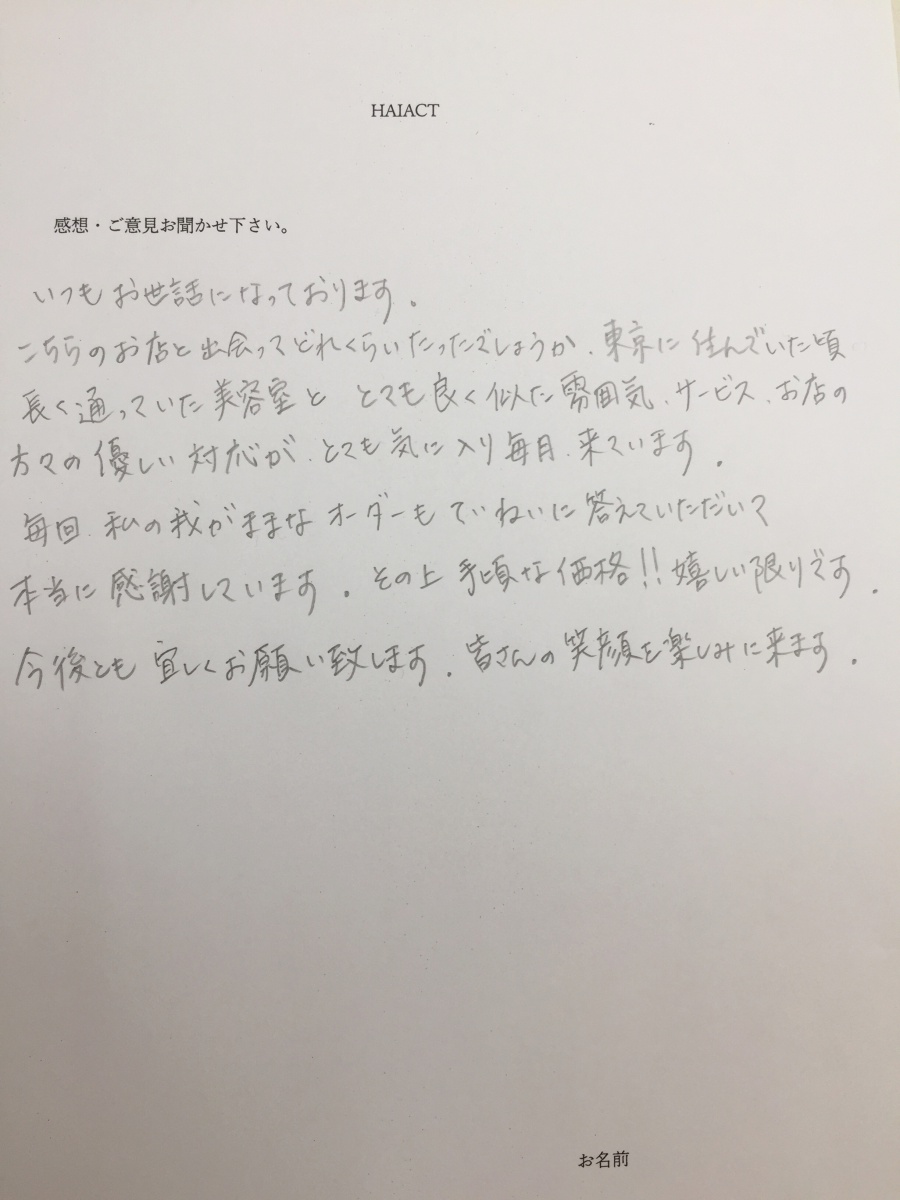 HAIACT
感想・ご意見お聞かせ下さい。
いつもお世話になっております。
こちらのお店と出会ってどれくらいたったでしょうか、東京に住んでいた頃
長く通っていた美容室と とても良く似た雰囲気、サービス、お店の
方々の優しい対応が、とても気に入り毎月、来ています。
毎回、私の我がままなオーダーもていねいに答えていただいて
本当に感謝しています。その上 手頃な価格!!嬉しい限りです。
今後とも宜しくお願い致します。皆さんの笑顔を楽しみに来ます。
お名前